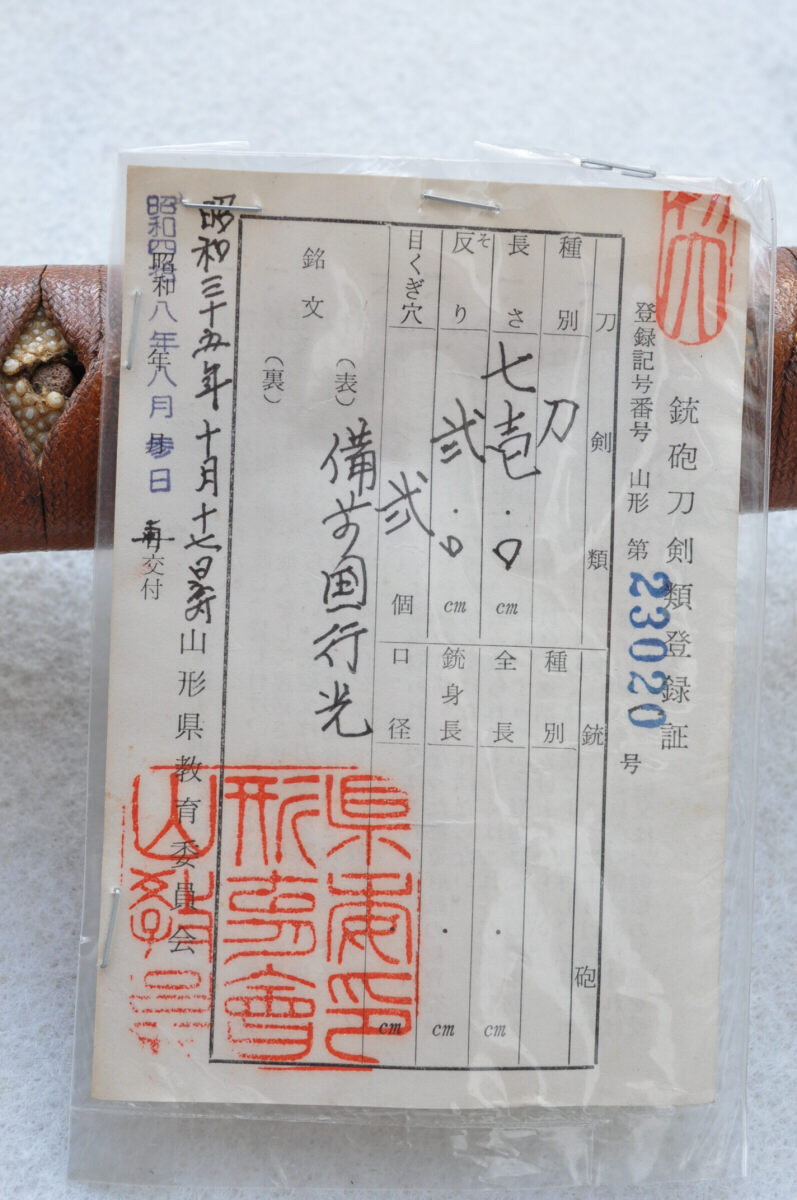 銃砲刀剣類登録証
登録記号番号 山形 第 23020 号
刀剣類
種別 刀
長さ 七壱.0 cm
反り そ 弐.0 cm
目くぎ穴 弐 個
銘文
(表) 備前国行光
(裏)
銃砲
種別
全長 . cm
銃身長 . cm
口径 cm
昭和三十五年十月十七日
山形県教育委員会
昭和四十八年八月 日
昭和 年 月 日 交付
山形県教育委員会印